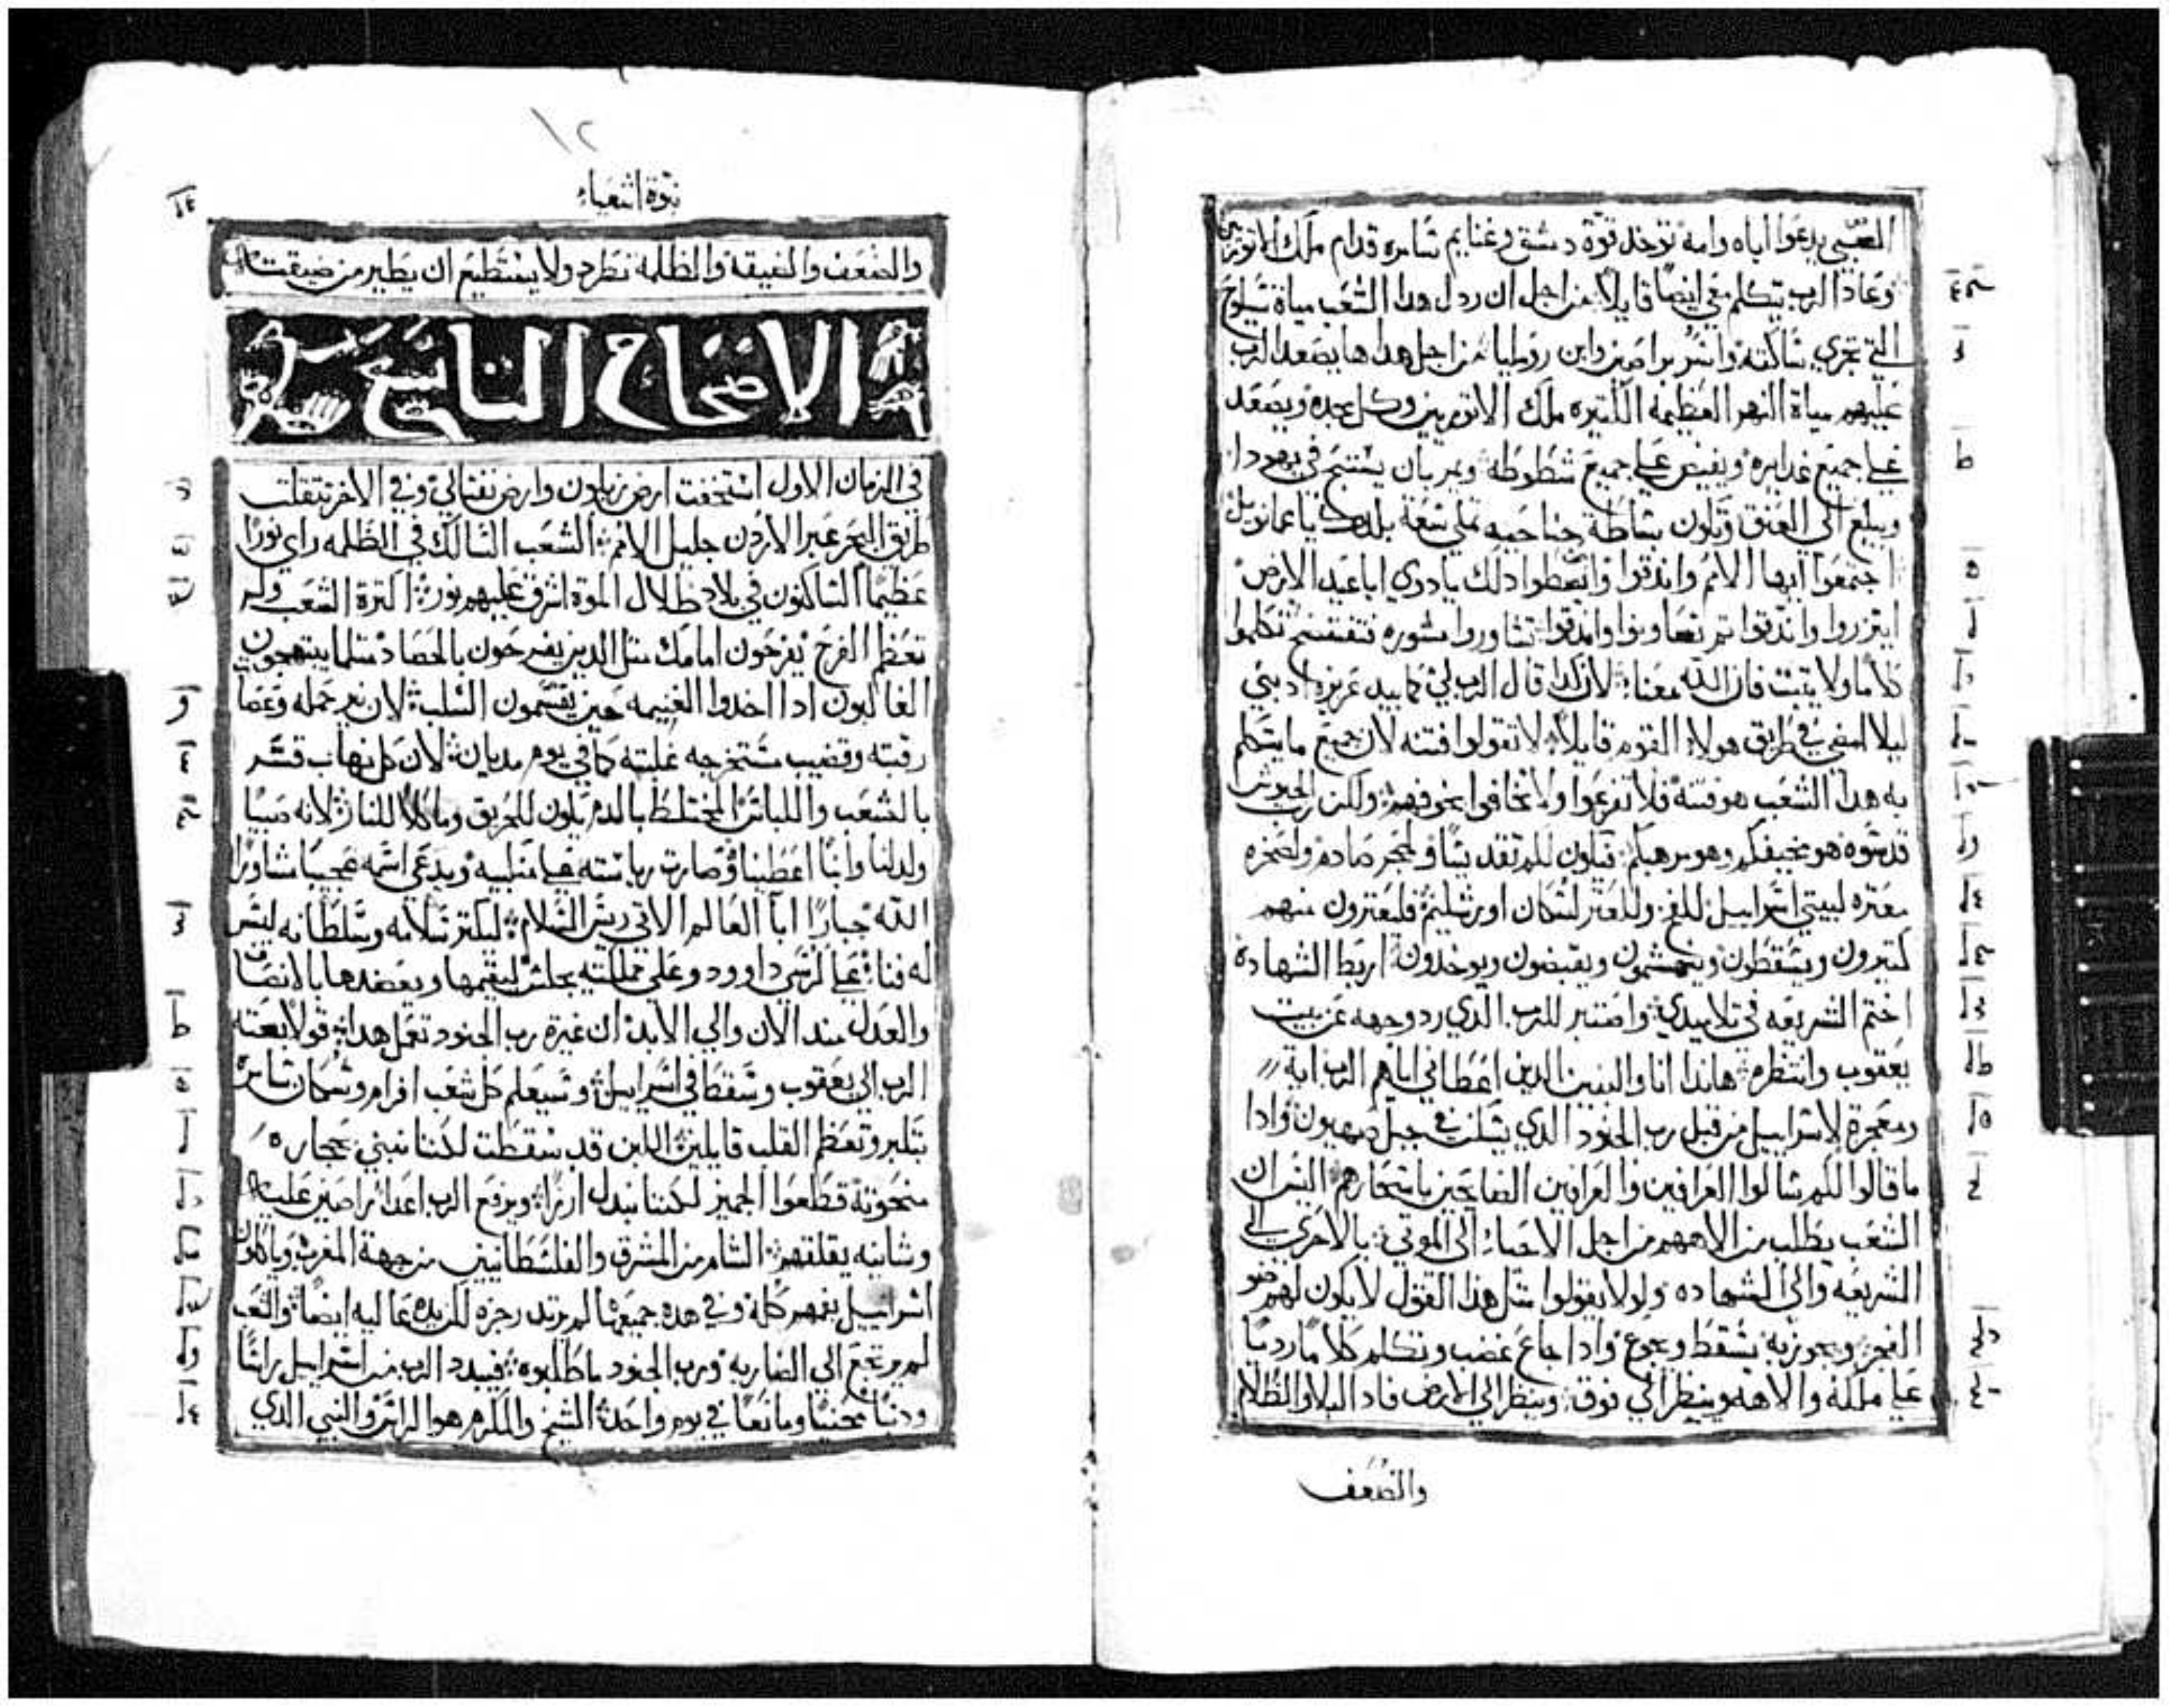 الصبي يدعوا اباه وامه توخد قوة دمشق وغنايم شامره قدام ملك الاتوريين
وعاد الرب يتكلم معي ايضا قايلا من اجل ان ردل هدا الشعب مياة شيلوح
التي تجري شاكته واشر براصين وابن روملیا من اجل هدا ها يصعد الرب
عليهم مياة النهر العظيمه الكتيره ملك الاتوريين وكل مجده ويصعد
علي جميع غدايره ويفيض علي جميع شطوطه ويمر بان يشتبح في يهودا
ويبلغ الي العنق وتكون بشاطة جناحيه تملي شعة بلادك يا عمانويل
اجتمعوا ايها الامم واندقوا واتعطوا دلك يا دوي اباعيد الارض
ايتزروا واندقوا تم تعاونوا واندقوا تشاوروا مشوره فتفتشح تكلموا
كلاما ولا يتبت فان الله معنا لان كدا قال الرب لي كما بيد عزيزه ادبني
ليلا امضي في طريق هولاء القوم قايلا لا تقولوا فتنه لان جميع ما يتكلم
به هدا الشعب هو فتنه فلا تفزعوا ولا تخافوا مخوفهم ولكن رب الجيوش
قدشوه هو مخيفكم وهو مرهبكم فيكون لكم تقديشا ولحجر صادم ولصخره
معتره لبيتي اشراييل للفخ وللمعتر لشكان اورشليم فليعترون منهم
كتيرون ويشقطون ويتهشمون ويقبضون ويوخدون اربط الشهادة
اختم الشريعه في تلاميدي واصتبر للرب الدي رد وجهه عن بيت
يعقوب وانتظره هاندا انا والبنين الدين اعطاني اياهم الرب اية
ومعجزة لاشراييل من قبل رب الجنود الدي يشكن في جبل صهيون وادا
ما قالوا لكم شالوا العرافين والعرافين الصايحين باشحارهم اليش ان
الشعب يطلب من الاههم من اجل الاحياء الي الموتي بالاحري الي
الشريعه والي الشهاده ولو لا يقولوا متل هدا القول لا يكون لهم ضو
الفجر ويجوز به يشقط ويجوع وادا جاع غضب وتكلم كلاما رديا
علي ملكه والاهه وينظر الي فوق وينظر الي الارض فادا البلا والظلام
والضعف
نبوة اشعياء
١٢
والضعف والضيقه والظلمه تطرد ولا يشتطيع ان يطير من ضيقته
الاصحاح التاسع
في الزمان الاول اشتخفت ارض زبلون وارض نفتالي وفي الاخر تتقلت
طريق البحر عبر الاردن جليل الامم الشعب الشالك في الظلمه راي نورا
عظيما الشاكنون في بلاد ظلال الموة اشرق عليهم نور اكترة الشعب ولم
تعظم الفرح يفرحون امامك متل الدين يفرحون بالحصاد متلما يبتهجون
الغالبون ادا اخدوا الغنيمه حين يقتشمون الشلب لان نير حمله وعصا
رقبته وقضيب مشتخرجه غلبته كما في يوم مديان لان كل نهاب قشر
بالشعب واللباش المختلط بالدم يكون للحريق وماكلا للنار لانه صبيا
ولد لنا وابنا اعطينا وصارت رياشته علي منكبيه ويدعي اشمه عجيبا مشاورا
الله جبارا ابا العالم الاتي ريش الشلام ليكتر شلامه وشلطانه ليش
له فنا علي كرشي داوود وعلي مملكته يجلش ليقيمها ويعضدها بالانصاف
والعدل مند الان والي الابد ان غيرة رب الجنود تعمل هدا قولا بعته
الرب الي يعقوب وشقط في اشراييل وشيعلم كل شعب افرام وشكان شامره
بتكبر وتعظم القلب قايلين اللبن قد شقطت لكننا نبني بحجاره
منحوتة قطعوا الجميز لكننا نبدل ارزا ويرفع الرب اعدا راصين عليه
وشانيه يقلقهم الشام من المشرق والفلشطانيين من جهة المغرب وياكلون
اشراييل بفمهم كله وفي هده جميعها لم يرتد رجزه لكن يده عاليه ايضا والشعب
لم يرتجع الي الضاربه ورب الجنود ما طلبوه فيبدد الرب من اشراييل راشا
ودنبا محنيا ومانعا في يوم واحد الشيخ والمكرم هو الراش والنبي الدي